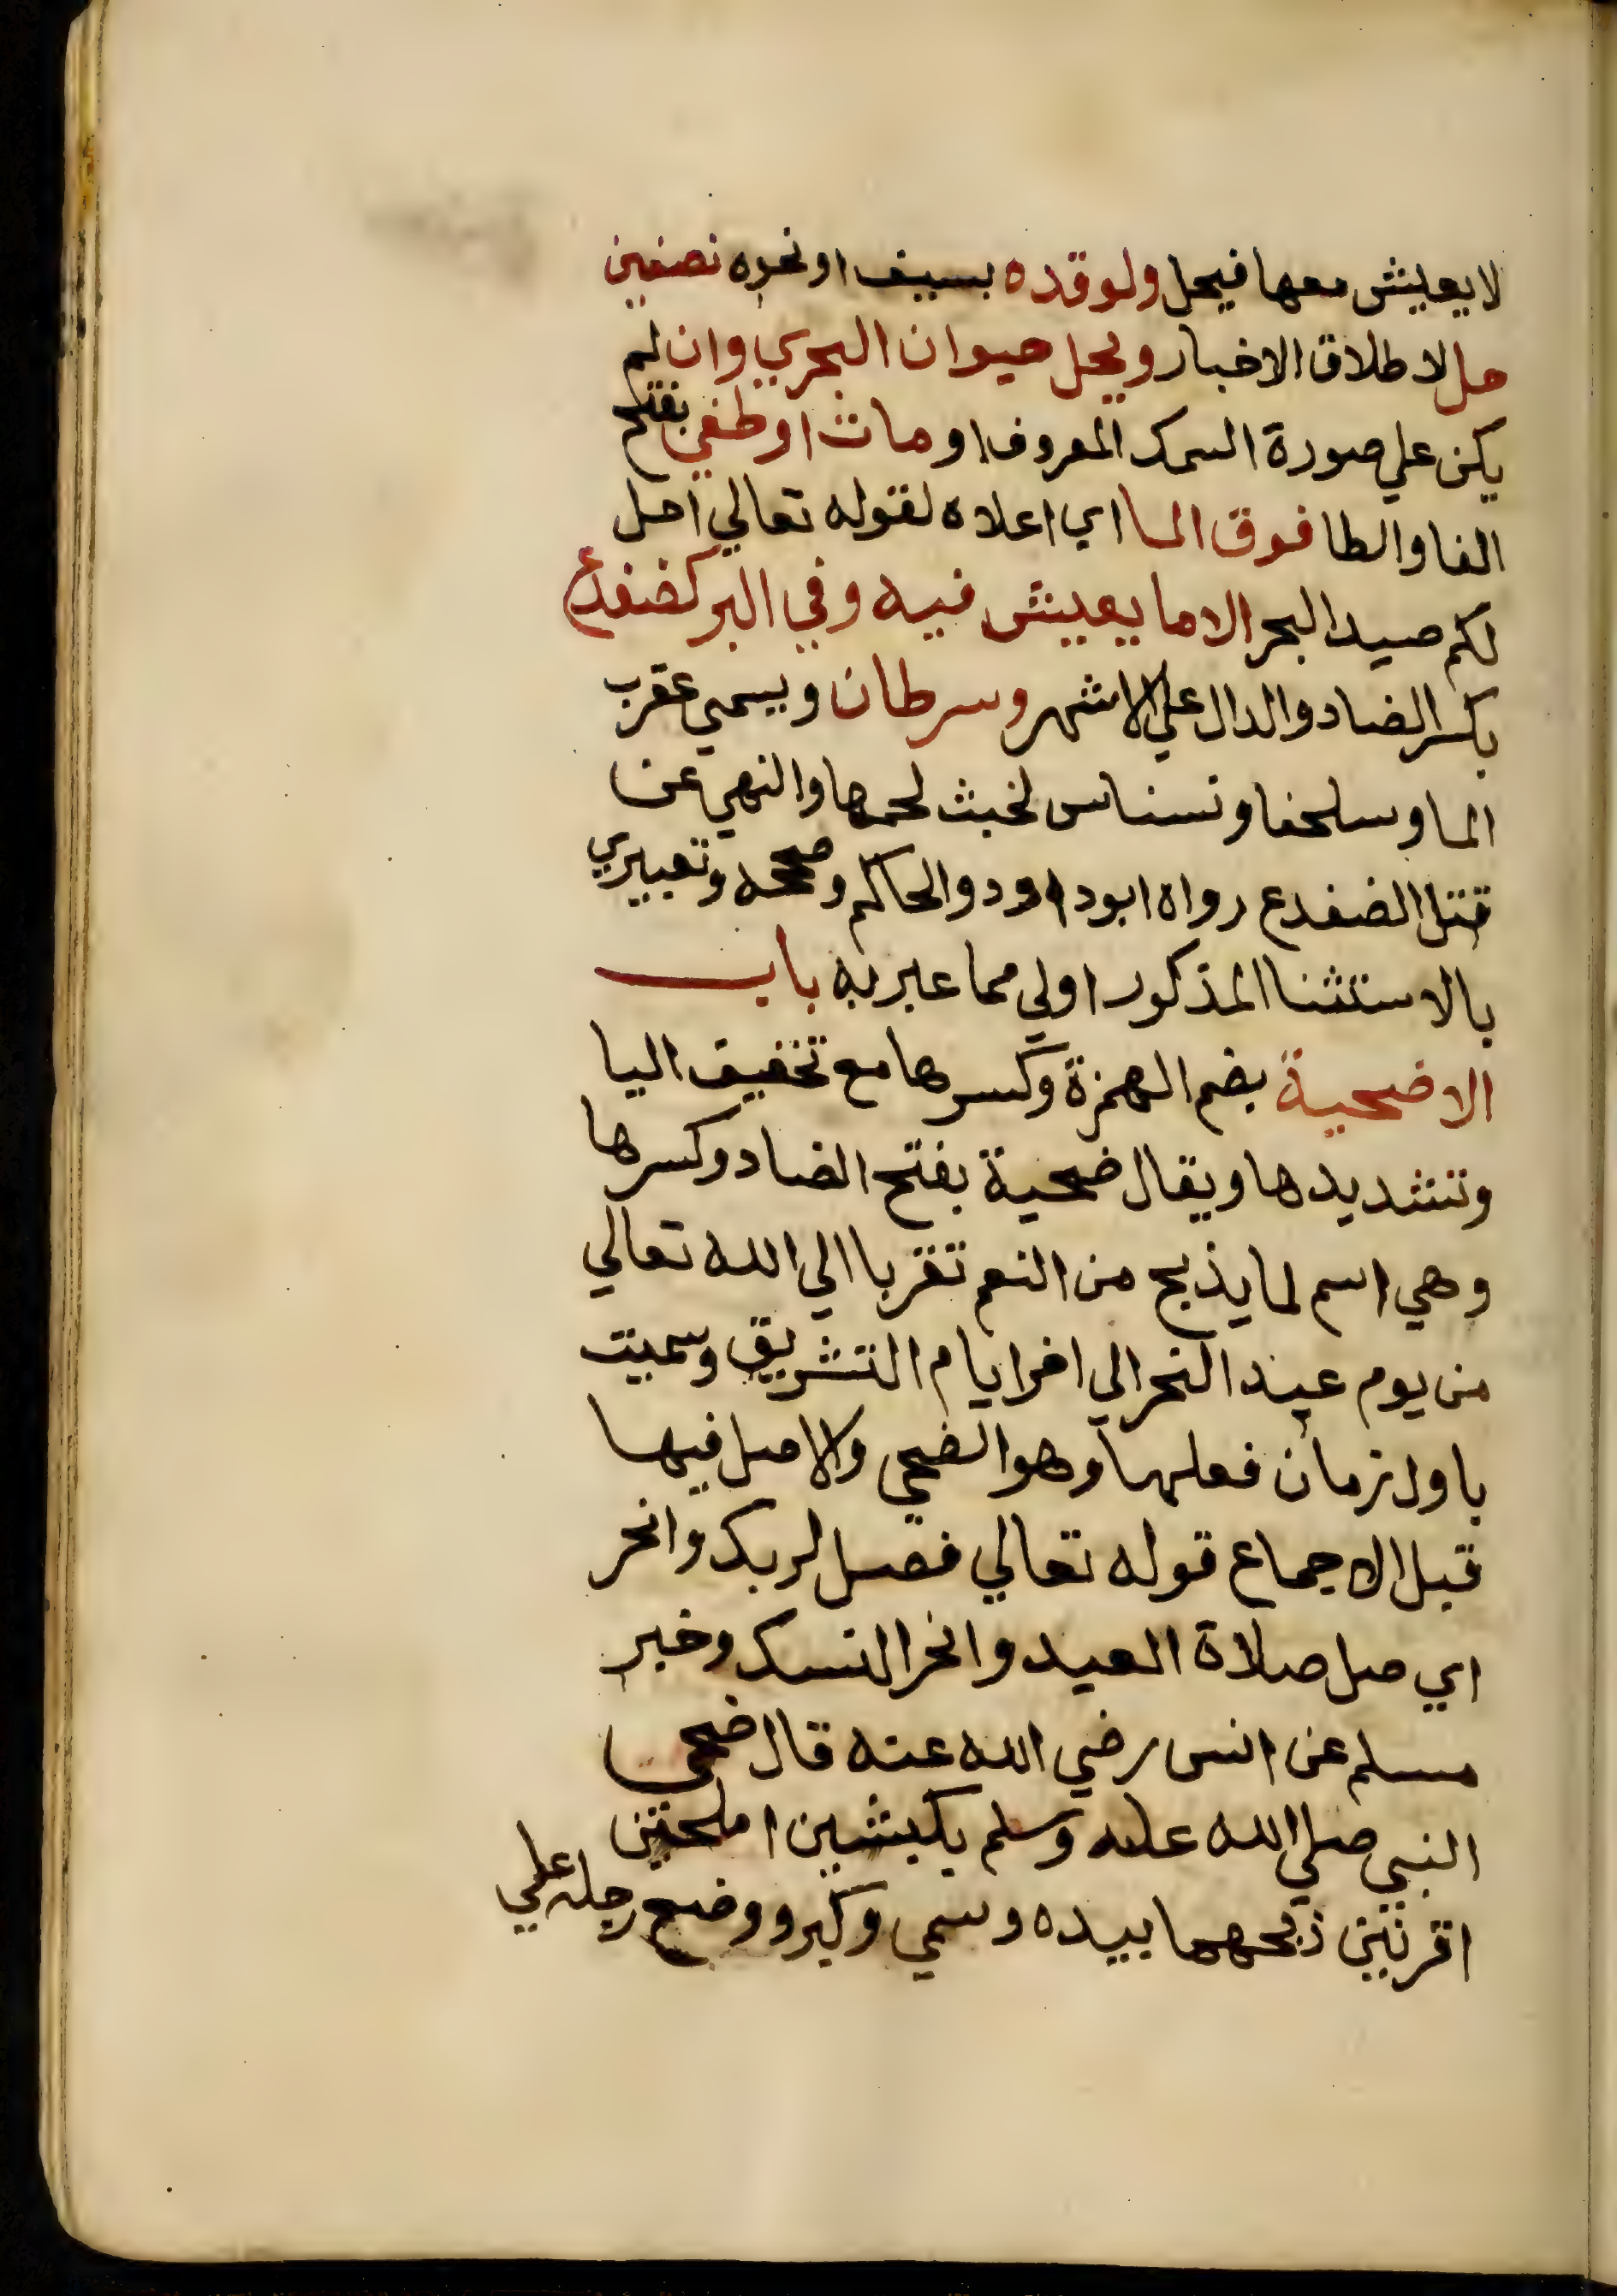 لا يعيش معها فيحل ولو قده بسيف او نحوه نصفين
حل لاطلاق الاخبار ويحل حيوان البحري وان لم
يكن علي صورة السمك المعروف او مات او طفي بفتح
الفا والطا فوق الما اي اعلاه لقوله تعالي احل
لكم صيد البحر الا ما يعيش فيه وفي البر كضفدع
بكسر الضاد والدال علي الاشهر وسرطان ويسمي عقرب
الما وسلحفا ونسناس لخبث لحمها والنهي عن
قتل الضفدع رواه ابو داود والحاكم وصححه وتعبيري
بالاستثنا المذكور اولي مما عبر به باب
الاضحية بضم الهمزة وكسرها مع تخفيف اليا
وتشديدها ويقال ضحية بفتح الضاد وكسرها
وهي اسم لما يذبح من النعم تقربا الي الله تعالي
من يوم عيد النحر الي اخر ايام التشريق وسميت
باول زمان فعلها وهو الضحي والاصل فيها
قبل الاجماع قوله تعالي فصل لربك وانحر
اي صل صلاة العيد وانحر النسك وخبر
مسلم عن انس رضي الله عنه قال ضحي
النبي صلي الله عليه وسلم بكبشين املحين
اقرنين ذبحهما بيده وسمي وكبر ووضع رجله علي